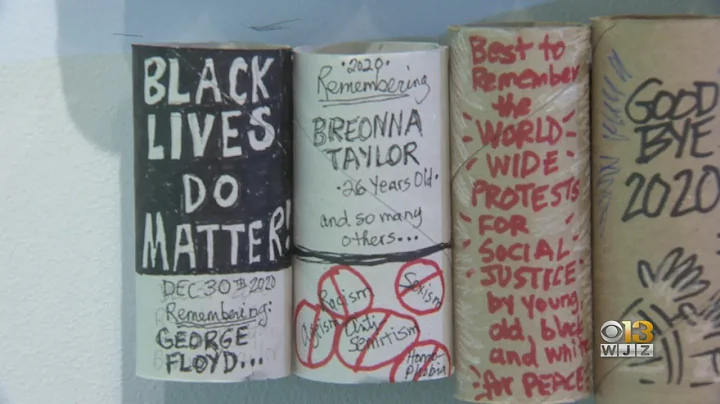 BLACK
LIVES
DO
MATTER!
DEC. 30TH 2020
Remembering:
GEORGE
FLOYD...
·2020·
Remembering
BREONNA
TAYLOR
·26 Years Old·
and so many
others...
Racism
Sexism
Ageism
Anti
Semirtism
Homo-
Phobia
Best to
Remember
the
WORLD-
WIDE
PROTESTS
FOR
SOCIAL
JUSTICE
by young,
old, black
and white
for PEACE
GOOD
BYE
2020
13
WJZ